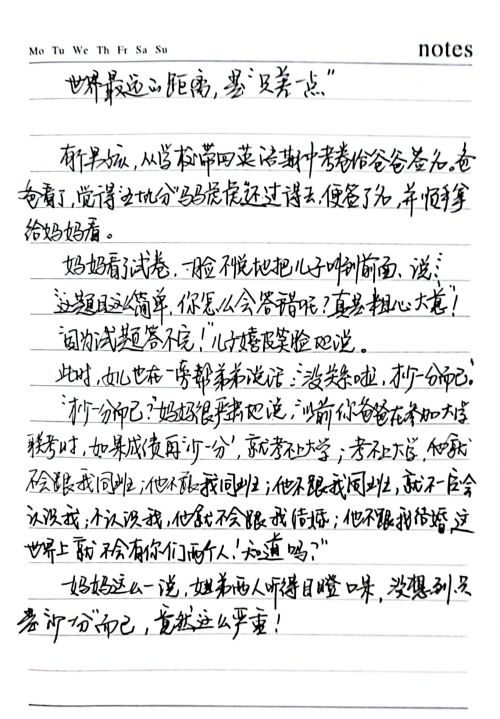 Mo Tu We Th Fr Sa Su
notes
世界最远的距离，是"只差一点"
有个男孩，从学校带回英语期中考卷给爸爸签名。爸
爸看了，觉得五九分"马马虎虎还过得去，便签了名，并顺手拿
给妈妈看。
妈妈看了试卷，一脸不悦地把儿子叫到前面、说："
这题目这么简单，你怎么会答错呢？真是粗心大意"！
"因为试题答不完！"儿子嬉皮笑脸地说。
此时，女儿也在一旁帮弟弟说话："没关系啦，才少一分而已."
"才少一分而已？"妈妈很严肃地说，"以前你爸爸在参加大学
联考时，如果成绩再'少一分'，就考不上大学；考不上大学，他就
不会跟我同班；他不跟我同班；他不跟我同班，就不一定会
认识我；不认识我，他就不会跟我结婚；他不跟我结婚，这
世界上就不会有你们两个人！知道吗？"
妈妈这么一说，姐弟两人听得目瞪口呆，没想到只
差"少一分"而已，竟然这么严重！